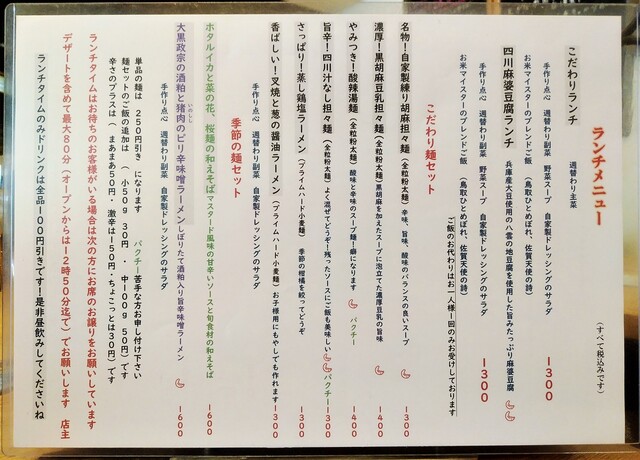 ランチメニュー
(すべて税込みです)
こだわりランチ 週替わり主菜
手作り点心 週替わり副菜 野菜スープ 自家製ドレッシングのサラダ
お米マイスターのブレンドご飯 (鳥取ひとめぼれ、佐賀天使の詩) 1300
四川麻婆豆腐ランチ 兵庫産大豆使用の八雲の地豆腐を使用した旨みたっぷり麻婆豆腐
手作り点心 週替わり副菜 野菜スープ 自家製ドレッシングのサラダ
お米マイスターのブレンドご飯 (鳥取ひとめぼれ、佐賀天使の詩) 1300
ご飯のお代わりはお一人様一回のみお受けしております
こだわり麺セット
名物!自家製練り胡麻担々麺 (全粒粉太麺) 辛味、旨味、酸味のバランスの良いスープ 1300
濃厚!黒胡麻豆乳担々麺 (全粒粉太麺) 黒胡麻を加えたスープに泡立てた濃厚豆乳の旨味 1400
やみつき!酸辣湯麺 (全粒粉太麺) 酸味と辛味のスープ麺!癖になります パクチー 1400
旨辛!四川汁なし担々麺 (全粒粉太麺) よく混ぜてどうぞ!残ったソースにご飯も美味しい パクチー 1300
さっぱり!蒸し鶏塩ラーメン (プライムハード小麦麺) 季節の柑橘を絞ってどうぞ 1300
香ばしい!叉焼と葱の醤油ラーメン (プライムハード小麦麺) お子様用にもやしでも作れます 1300
手作り点心 週替わり副菜 自家製ドレッシングのサラダ
季節の麺セット
ホタルイカと菜の花、桜麺の和えそば マスタード風味の甘辛いソースと旬食材の和えそば 1600
大黒政宗の酒粕と猪肉のピリ辛味噌ラーメン しぼりたて酒粕入り旨辛味噌ラーメン 1600
手作り点心 週替わり副菜 自家製ドレッシングのサラダ
単品の麺は 250円引き になります パクチー苦手な方お申し付け下さい
麺セットのご飯の追加は (小50g 30円 ・ 中100g 50円) です
辛さのプラスは (まあまあ50円・激辛は150円・ちょこっとは30円) です
ランチタイムはお待ちのお客様がいる場合は次の方にお席のお譲りをお願いしています
デザートを含めて最大80分 (オープンからは12時50分迄で) でお願いします 店主
ランチタイムのみドリンクは全品100円引きです!是非昼飲みしてくださいね